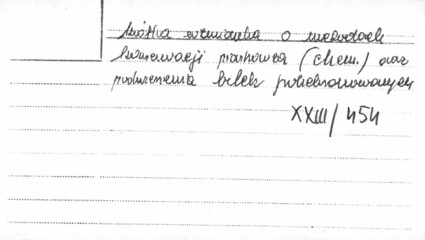 krótka wzmianka o metodach
konserwacji piaskowca (chem.) oraz
podwieszenia belek polichromowanych
XXIII/454